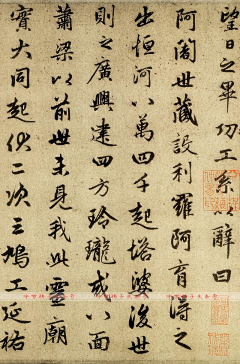 望日之畢功工系以辭曰
阿闍世藏設利羅阿育得之
出恒河八萬四千起塔婆後世
則之廣興建四方玲瓏或八面
蕭梁以前世未見我此靈廟
實大同起伏二次三鳩工延祐